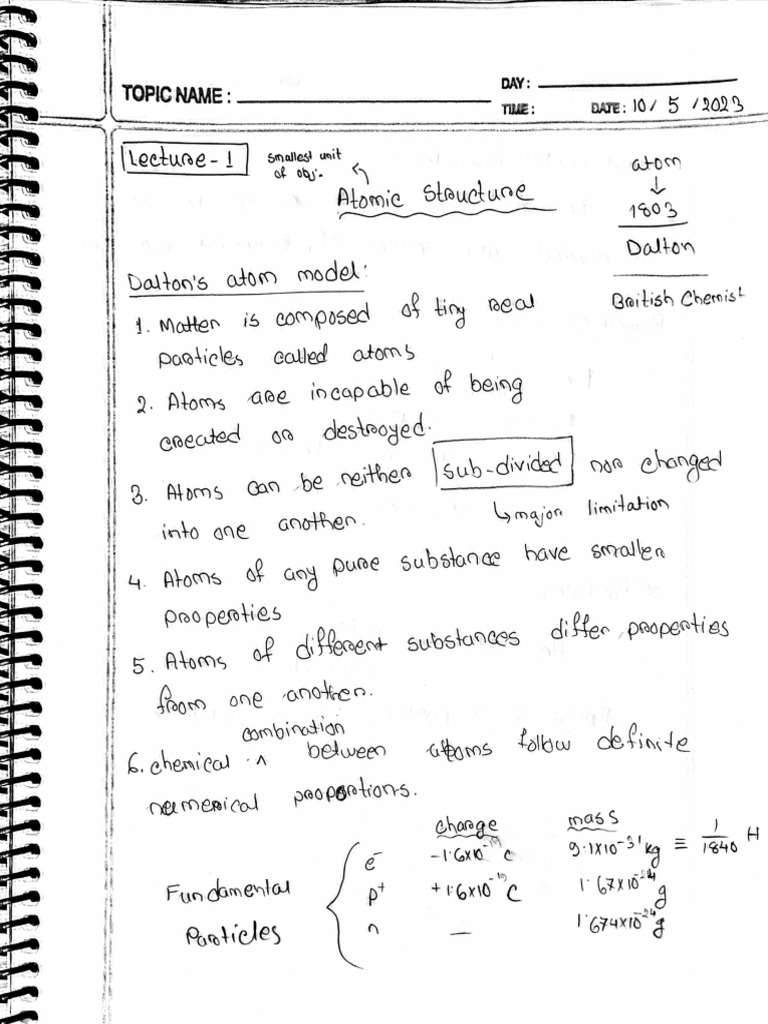 DAY:
TOPIC NAME:
TIME: DATE: 10/5/2023
Lecture-1
smallest unit
of obj.
Atomic Structure
atom
↓
1803
Dalton
British Chemist
Dalton's atom model:
1. Matter is composed of tiny real
particles called atoms
2. Atoms are incapable of being
created or destroyed.
3. Atoms can be neither sub-divided nor changed
into one another.
↳ major limitation
4. Atoms of any pure substance have smaller
properties
5. Atoms of different substances differ properties
from one another.
combination
6. chemical ^ between atoms follow definite
numerical proportions.
charge mass
e⁻ -1.6×10⁻¹⁹ C 9.1×10⁻³¹ kg ≡ 1/1840 H
Fundamental
Particles
p⁺ +1.6×10⁻¹⁹ C 1.67×10⁻²⁴ g
n — 1.674×10⁻²⁴ g